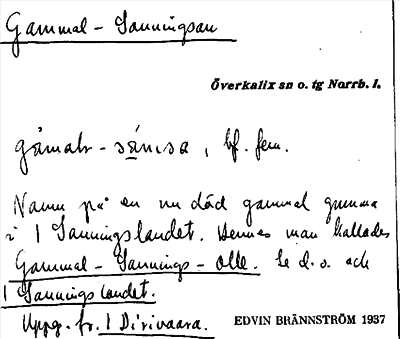 Gammal-Sanningsan
Överkalix sn o. tg Norrb. l.
gåmalr-sänsa, bf. fem.
Namn på en nu död gammal gumma
i 1 Sanningslandet. Hennes man kallades
Gammal-Sannings-Olle. Se d.o. och
1 Sanningslandet.
Uppg. fr. 1 Dirivaara.
EDVIN BRÄNNSTRÖM 1937